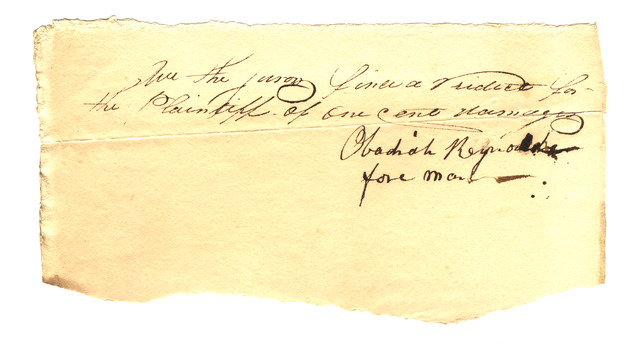 We the jurory find a vidict for
the Plaintiff of one cent damages
Obadiah Reynolds
fore man